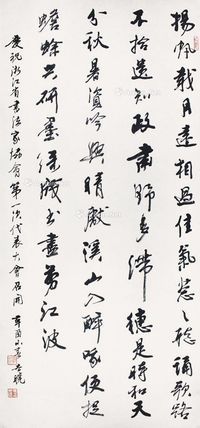 揚帆載月遠相過佳氣葱〻聽誦歌路
不拾遺知政肅野多滯穗是時和天
分秋暑資吟興晴獻溪山入醉哦便捉
蟾蜍共研墨綵牋書盡剪江波
慶祝浙江省書法家協會第一次代表大會召開 辛酉